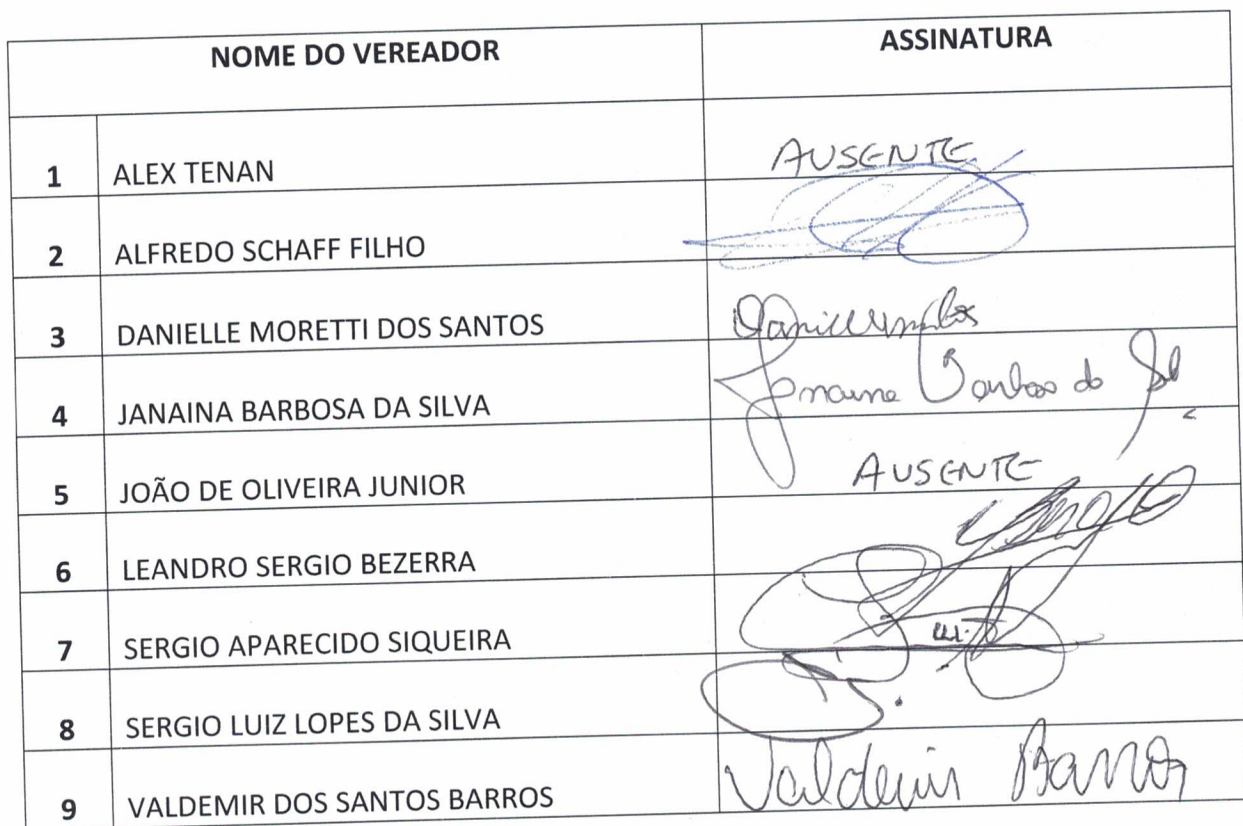 NOME DO VEREADOR ASSINATURA
1 ALEX TENAN AUSENTE
2 ALFREDO SCHAFF FILHO
3 DANIELLE MORETTI DOS SANTOS
4 JANAINA BARBOSA DA SILVA
5 JOÃO DE OLIVEIRA JUNIOR AUSENTE
6 LEANDRO SERGIO BEZERRA
7 SERGIO APARECIDO SIQUEIRA
8 SERGIO LUIZ LOPES DA SILVA
9 VALDEMIR DOS SANTOS BARROS Valdemir Barros